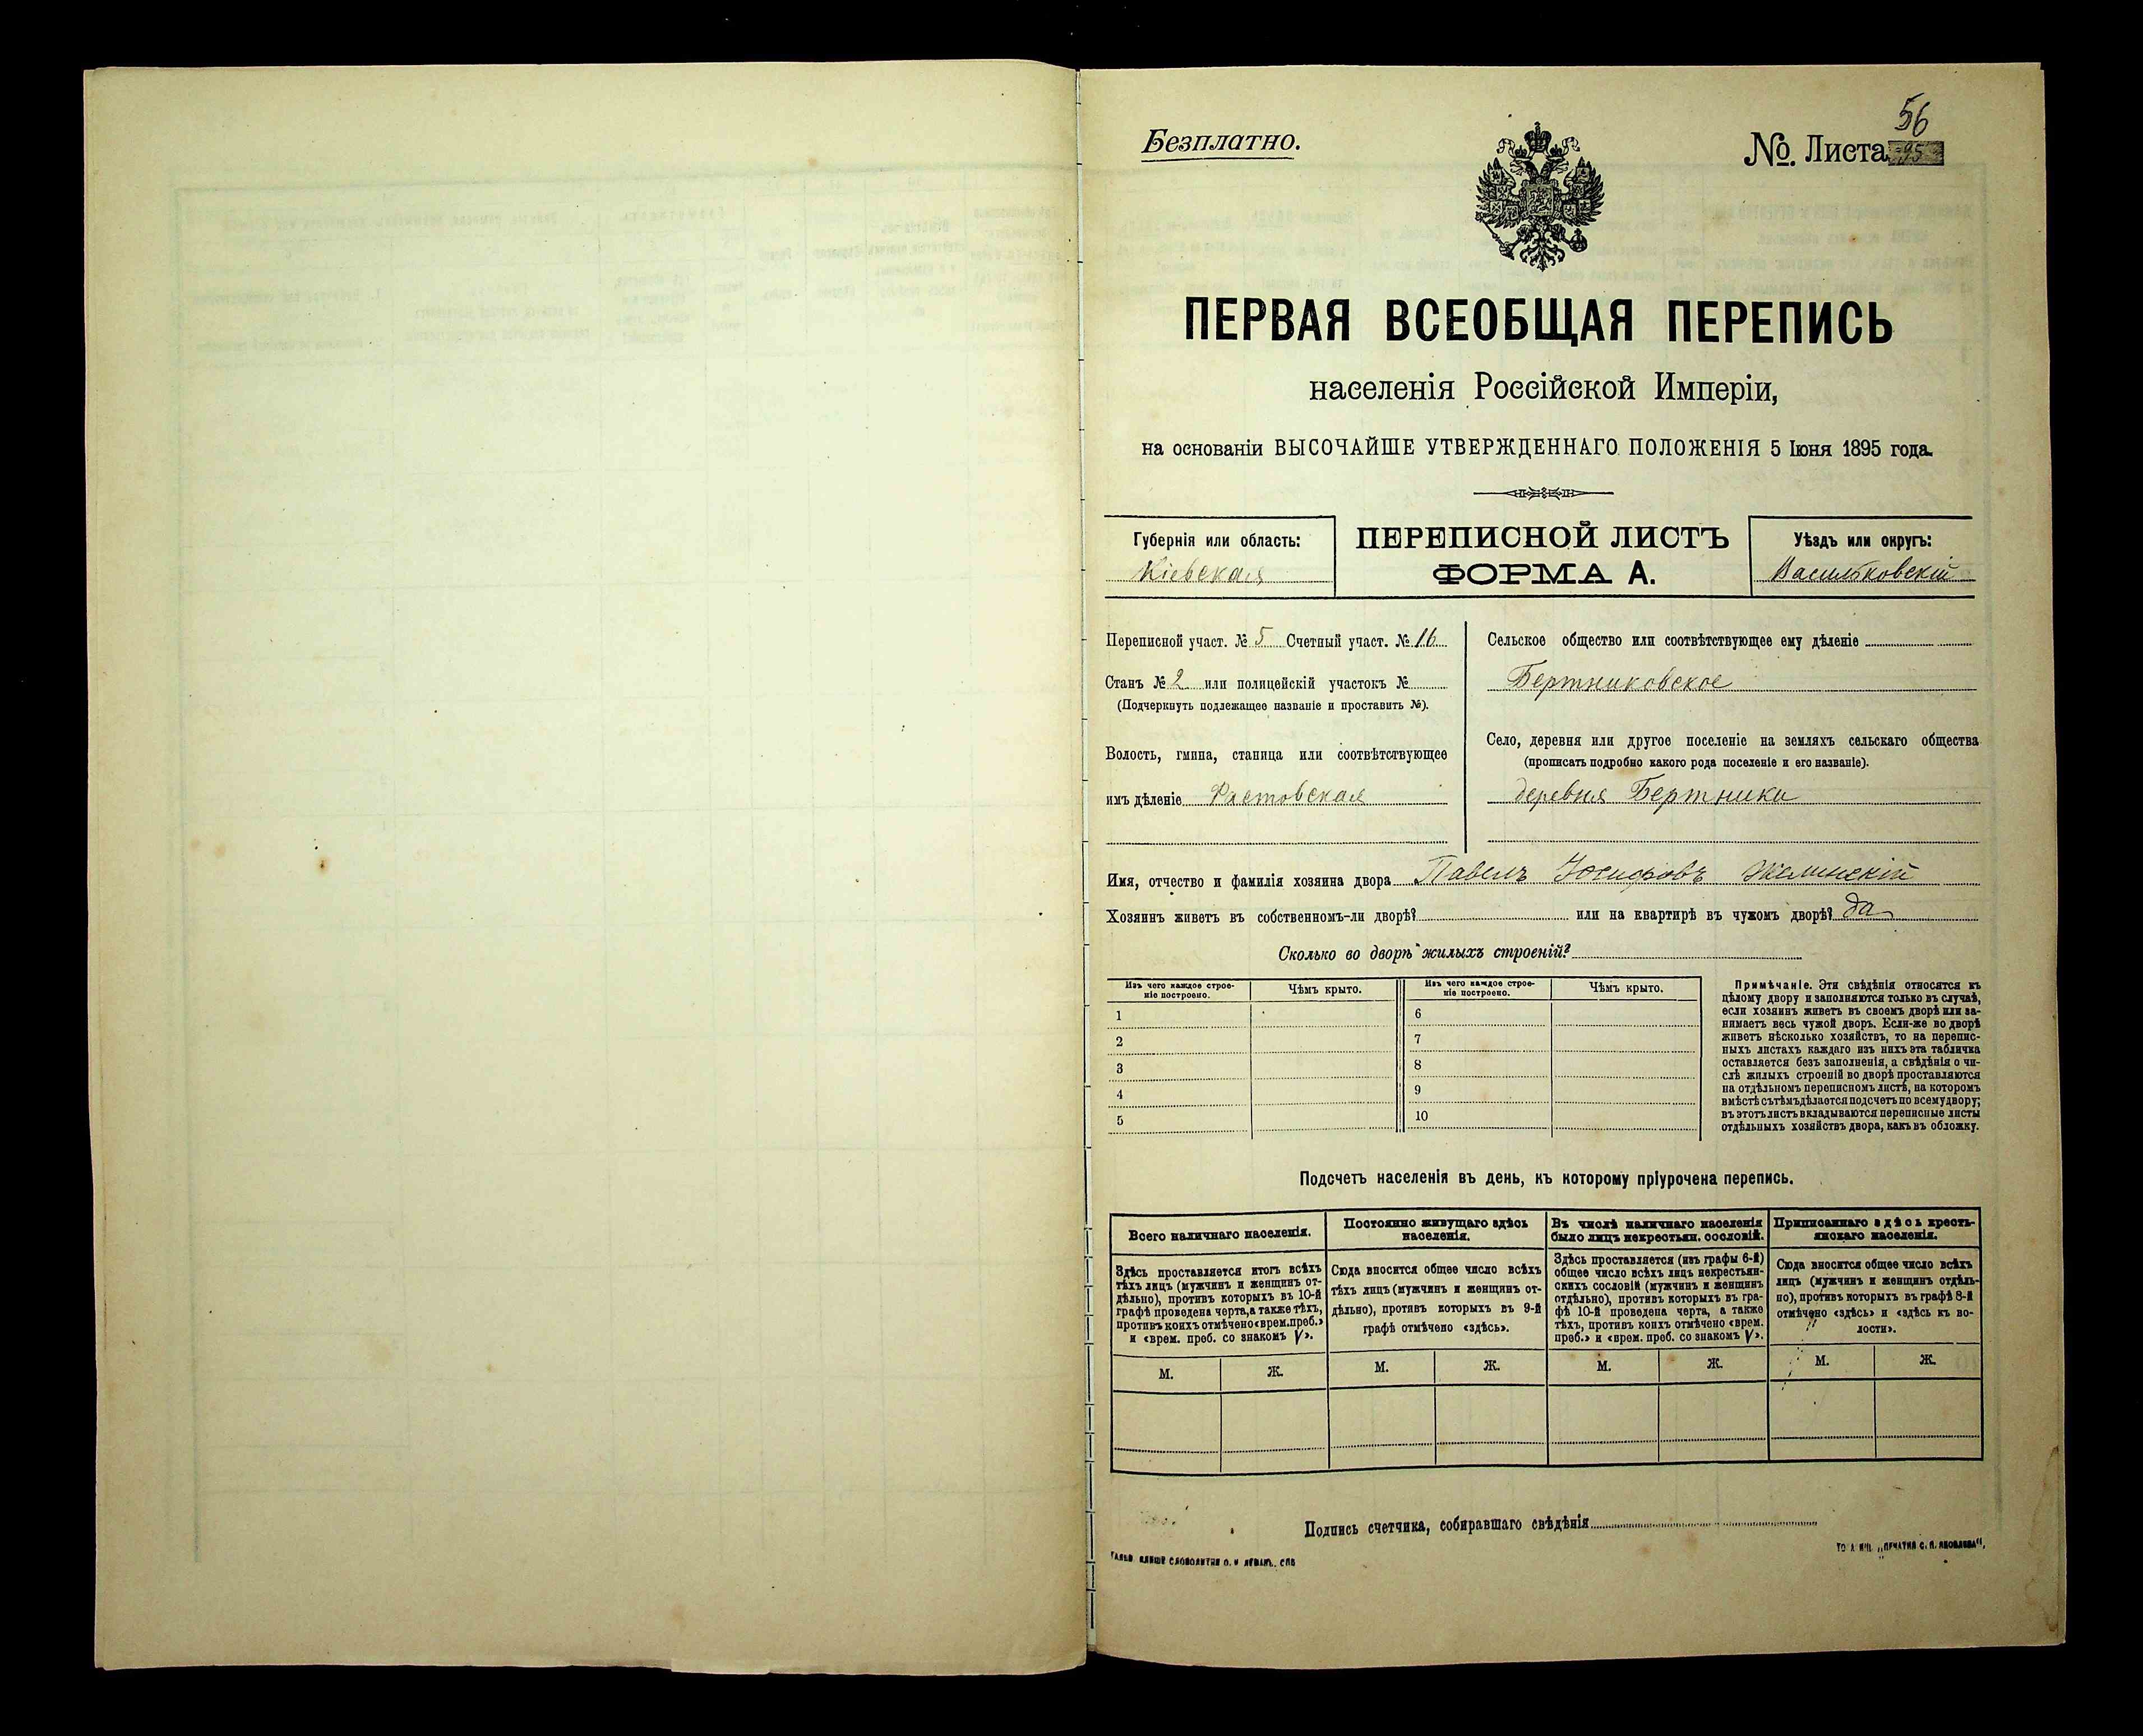 56
Безплатно.
№. Листа 95
ПЕРВАЯ ВСЕОБЩАЯ ПЕРЕПИСЬ
населенія Россійской Имперіи,
на основаніи ВЫСОЧАЙШЕ УТВЕРЖДЕННАГО ПОЛОЖЕНІЯ 5 Іюня 1895 года.
Губернія или область:
Кіевская
ПЕРЕПИСНОЙ ЛИСТЪ
ФОРМА А.
Уѣздъ или округъ:
Васильковскій
Переписной участ. № 5 Счетный участ. № 16
Станъ № 2 или полицейскій участокъ №
(Подчеркнуть подлежащее названіе и проставить №).
Волость, гмина, станица или соотвѣтствующее
имъ дѣленіе Фастовская
Сельское общество или соотвѣтствующее ему дѣленіе
Бертниковское
Село, деревня или другое поселеніе на земляхъ сельскаго общества
(прописать подробно какого рода поселеніе и его названіе).
деревня Бертники
Имя, отчество и фамилія хозяина двора Павелъ Юсифовъ
Хозяинъ живетъ въ собственномъ-ли дворѣ? или на квартирѣ въ чужомъ дворѣ? да
Сколько во дворѣ жилыхъ строеній?
Изъ чего каждое строе-
ніе построено.
Чѣмъ крыто.
Изъ чего каждое строе-
ніе построено.
Чѣмъ крыто.
1
2
3
4
5
6
7
8
9
10
Примѣчаніе. Эти свѣдѣнія относятся къ
цѣлому двору и заполняются только въ случаѣ,
если хозяинъ живетъ въ своемъ дворѣ или за-
нимаетъ весь чужой дворъ. Если-же во дворѣ
живетъ нѣсколько хозяйствъ, то на перепис-
ныхъ листахъ каждаго изъ нихъ эта табличка
оставляется безъ заполненія, а свѣдѣнія о чи-
слѣ жилыхъ строеній во дворѣ проставляются
на отдѣльномъ переписномъ листѣ, на которомъ
вмѣстѣ съ тѣмъ дѣлается подсчетъ по всему двору;
въ этотъ листъ вкладываются переписные листы
отдѣльныхъ хозяйствъ двора, какъ въ обложку.
Подсчетъ населенія въ день, къ которому пріурочена перепись.
Всего наличнаго населенія.
Здѣсь проставляется итогъ всѣхъ
тѣхъ лицъ (мужчинъ и женщинъ от-
дѣльно), противъ которыхъ въ 10-й
графѣ проведена черта, а также тѣхъ,
противъ коихъ отмѣчено «врем. преб.»
и «врем. преб. со знакомъ V».
М.
Ж.
Постоянно живущаго здѣсь
населенія.
Сюда вносится общее число всѣхъ
тѣхъ лицъ (мужчинъ и женщинъ от-
дѣльно), противъ которыхъ въ 9-й
графѣ отмѣчено «здѣсь».
М.
Ж.
Въ числѣ наличнаго населенія
было лицъ некрестьян. сословій.
Здѣсь проставляется (изъ графы 6-й)
общее число всѣхъ лицъ некрестьян-
скихъ сословій (мужчинъ и женщинъ
отдѣльно), противъ которыхъ въ гра-
фѣ 10-й проведена черта, а также
тѣхъ, противъ коихъ отмѣчено «врем.
преб.» и «врем. преб. со знакомъ V».
М.
Ж.
Приписаннаго здѣсь кресть-
янскаго населенія.
Сюда вносится общее число всѣхъ
лицъ (мужчинъ и женщинъ отдѣль-
но), противъ которыхъ въ графѣ 8-й
отмѣчено «здѣсь» и «здѣсь къ во-
лости».
М.
Ж.
Подпись счетчика, собиравшаго свѣдѣнія